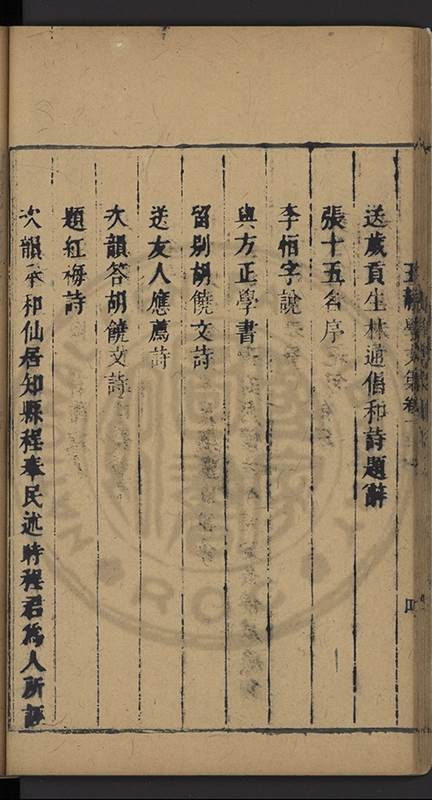 送歲貢生林通倡和詩題辭
張十五名序
李恒字說
與方正學書
留別胡饒文詩
送友人應薦詩
次韻答胡饒文詩
題紅梅詩
次韻奉和仙居知縣程奉民述時程君爲人所誣
四